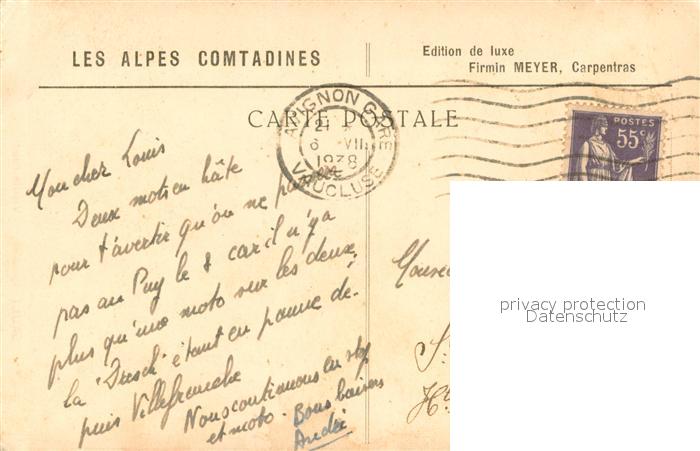 LES ALPES COMTADINES
Edition de luxe
Firmin MEYER, Carpentras
CARTE POSTALE
AVIGNON GARE
21
6 VII
1938
VAUCLUSE
POSTES
55c
Mon cher Louis
Deux mots en hâte
pour t'avertir qu'on ne
pas au Puy le 8 car il n'y a
plus qu'une moto sur les deux,
la "Dresch" étant en panne de-
puis Villefranche
Nous continuons en stop
et moto. Bons baisers
André
privacy protection
Datenschutz